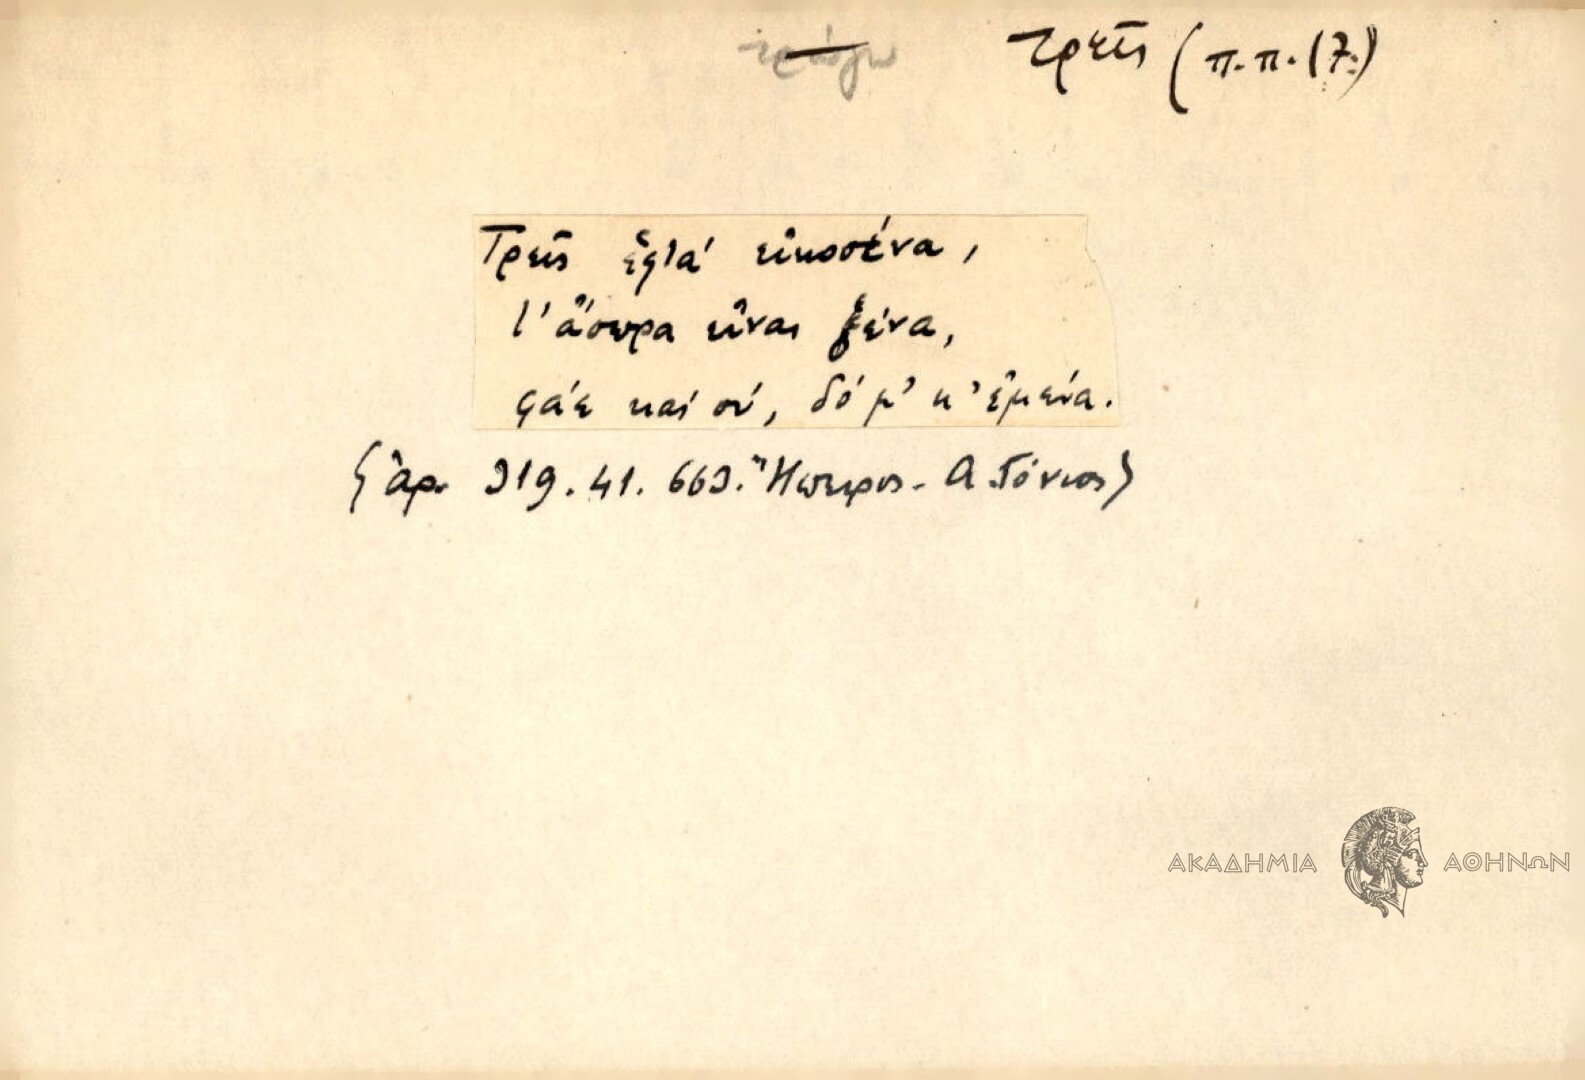 τρώγω τρεῖς (π.π. (7.)
Τρεῖς ἑφτά εἰκοσένα,
τ' ἄσπρα εἶναι ξένα,
φάε καί σύ, δό μ' κ' ἐμένα.
(ἀρ. 919. 41. 669. Ἤπειρος - Α.
ΑΚΑΔΗΜΙΑ ΑΘΗΝΩΝ